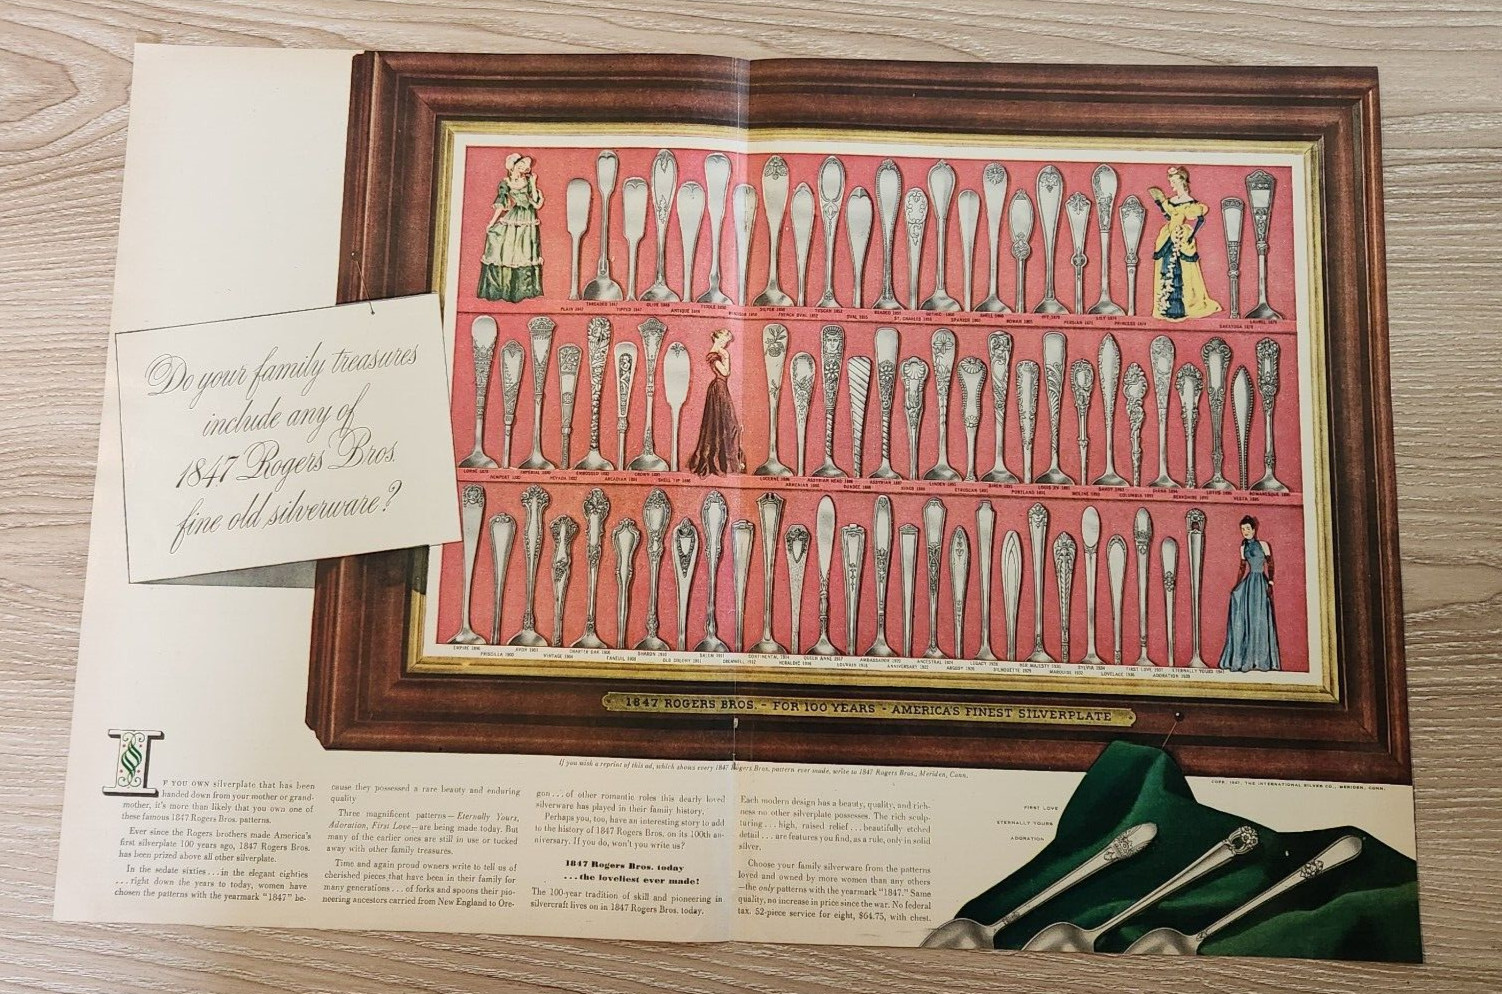 Do your family treasures
include any of
1847 Rogers Bros.
fine old silverware?
PLAIN 1847
THREADED 1847
TIPPED 1847
OLIVE 1848
ANTIQUE
FRENCH OVAL
TUSCAN
OVAL
BEADED 1855
ST. CHARLES
GOTHIC
SPANISH
SHELL
ROMAN
PERSIAN 1871
LILY
PRINCESS
SARATOGA
LAUREL
LORNE
NEWPORT
IMPERIAL
NEVADA
EMBOSSED 1882
ARCADIAN 1884
CROWN 1885
SHELL TIP
LUCERNE
ARMENIAN 1886
ASSYRIAN HEAD 1886
DUNDEE 1886
ASSYRIAN 1887
LINDEN
ETRUSCAN 1891
PORTLAND 1891
MOLINE
COLUMBIA
BERKSHIRE
LOTUS
VESTA 1895
ROMANESQUE
EMPIRE 1896
PRISCILLA 1900
AVON 1901
VINTAGE 1904
CHARTER OAK 1906
FANEUIL 1908
SHARON 1910
OLD COLONY 1911
SALEM 1911
CROMWELL 1912
CONTINENTAL 1914
HERALDIC 1916
QUEEN ANNE 1917
LOUVAIN 1918
AMBASSADOR 1919
ANNIVERSARY 1923
ANCESTRAL 1924
ARGOSY 1926
LEGACY 1928
SILHOUETTE 1930
HER MAJESTY 1931
MARQUISE 1933
SYLVIA 1934
LOVELACE 1936
FIRST LOVE 1937
ADORATION 1939
ETERNALLY YOURS 1941
1847 ROGERS BROS. - FOR 100 YEARS - AMERICA'S FINEST SILVERPLATE
If you wish a reprint of this ad, which shows every 1847 Rogers Bros. pattern ever made, write to 1847 Rogers Bros., Meriden, Conn.
COPR. 1947, THE INTERNATIONAL SILVER CO., MERIDEN, CONN.
IF YOU OWN silverplate that has been
handed down from your mother or grand-
mother, it's more than likely that you own one of
these famous 1847 Rogers Bros. patterns.
Ever since the Rogers brothers made America's
first silverplate 100 years ago, 1847 Rogers Bros.
has been prized above all other silverplate.
In the sedate sixties...in the elegant eighties
...right down the years to today, women have
chosen the patterns with the yearmark "1847" be-
cause they possessed a rare beauty and enduring
quality
Three magnificent patterns—Eternally Yours,
Adoration, First Love—are being made today. But
many of the earlier ones are still in use or tucked
away with other family treasures.
Time and again proud owners write to tell us of
cherished pieces that have been in their family for
many generations...of forks and spoons their pio-
neering ancestors carried from New England to Ore-
gon...of other romantic roles this dearly loved
silverware has played in their family history.
Perhaps you, too, have an interesting story to add
to the history of 1847 Rogers Bros. on its 100th an-
niversary. If you do, won't you write us?
1847 Rogers Bros. today
...the loveliest ever made!
The 100-year tradition of skill and pioneering in
silvercraft lives on in 1847 Rogers Bros. today.
Each modern design has a beauty, quality, and rich-
ness no other silverplate possesses. The rich sculp-
turing...high, raised relief...beautifully etched
detail...are features you find, as a rule, only in solid
silver.
Choose your family silverware from the patterns
loved and owned by more women than any others
—the only patterns with the yearmark "1847." Same
quality, no increase in price since the war. No federal
tax. 52-piece service for eight, $64.75, with chest.
FIRST LOVE
ETERNALLY YOURS
ADORATION